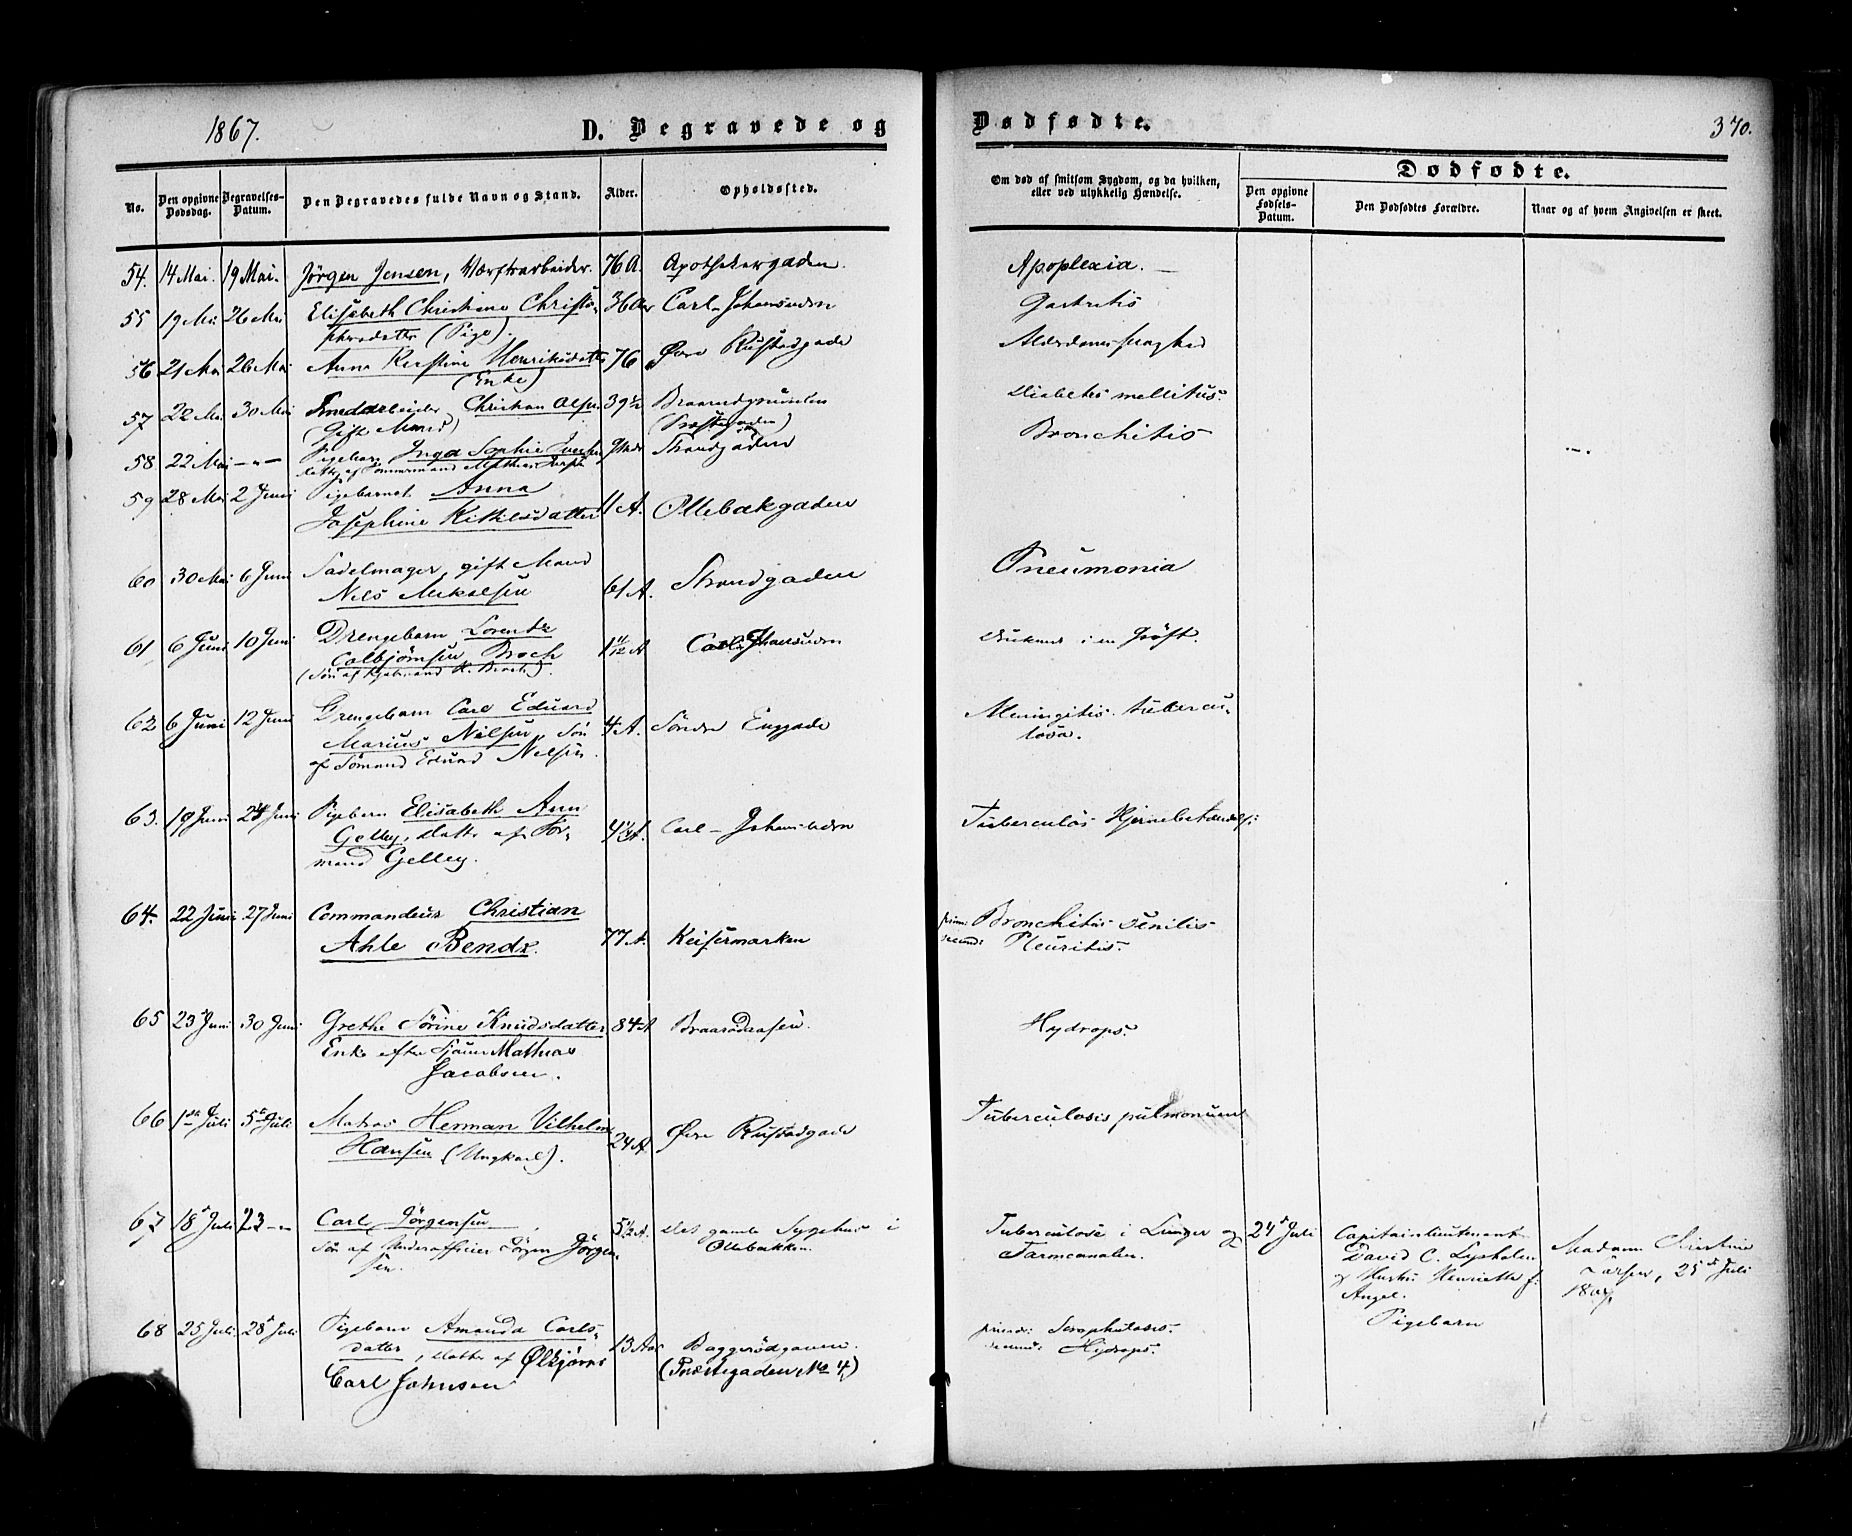 1867.
D. Begravede og
Dødfødte.
370.
No.
Den opgivne Dødsdag.
Begravelses-Datum.
Den Begravedes fulde Navn og Stand.
Alder.
Opholdssted.
Om død af smitsom Sygdom, og da hvilken,
eller ved ulykkelig Hændelse.
Dødfødte.
Den opgivne Fødsels-Datum.
Den Dødfødtes Forældre.
Naar og af hvem Angivelsen er skeet.
54. 14 Mai. 19 Mai. Jörgen Jensen, Værftsarbeider. 76 A. Apothekergaden. Apoplexia. —
55 19 Mai 26 Mai Elisabeth Christiane Christo- 36 Aar Carl-Johansuden Gastritis
phersdatter (Pige).
56 21 Mai 26 Mai Anne Kirstine Henriksdatter 76 Øvre Rustadgade Alderdomssvaghed
(Enke)
57 22 Mai 30 Mai Christian Olsen 39 1/2 Diabetes mellitus.
(Gift Mand)
58 22 Mai —"— Pigebarn Inga Sophie Strandgaden Bronchitis
59 28 Mai 2 Juni Pigebarnet Anna
Josephine Kittilsdatter 11 A. Ollebakgaden
60 30 Mai 6 Juni Sadelmager, gift Mand Strandgaden Pneumonia
Nils Mikalsen 61 A.
61 6 Juni 10 Juni Drengebarn Lorentz 1 11/12 A Carl Johansuden Druknet i en Grøft.
Colbjörnsen Broch
62 6 Juni 12 Juni Drengebarn Carl Eduard 4 A. Søndre Enggade Meningitis tubercu-
Marius Nilsen, Søn losa.
af Sömand Edvard Nilsen.
63. 19 Juni 24 Juni Pigebarn Elisabeth Ann Carl-Johansuden Tuberculøs Hjernebetændelse
Gelley, Datter af For-
mand Gelley.
64. 22 Juni 27 Juni Commandeur Christian prim: Bronchitis senilis
Ahle Bendz. 77 A. Keisermarken secund: Pleuritis.
65 23 Juni 30 Juni Grethe Sörine Knudsdatter 84 A Braarudaasen. Hydrops.
Enke efter Mathias
Jacobsen.
66 1ste Juli 5te Juli Matros Herman Vilhelm Tuberculosis pulmonum
Hansen (Ungkarl). 24 A Øvre Rustadgade
67 18 Juli 23 —"— Carl Jörgensen 5 1/2 A. Det gamle Sygehus i Tuberculose i Lunger og 24 Juli Capitainlieutenant
Søn af Underofficier Jörgen Jörgen- Ollebakken. Tarmcanalen. David C. Lysholm Madam Kirstine
sen. og Hustru Henriette f: Larsen, 25 Juli
Angel. 1867.
Pigebarn
68 25 Juli 28 Juli Pigebarn Amanda Carls- 13 Aar Baggerödgaven. primo: Scrophulosis.
datter, Datter af Ølkjörer (Præstegaden No 4) secund: Hydrops.
Carl Johnsen